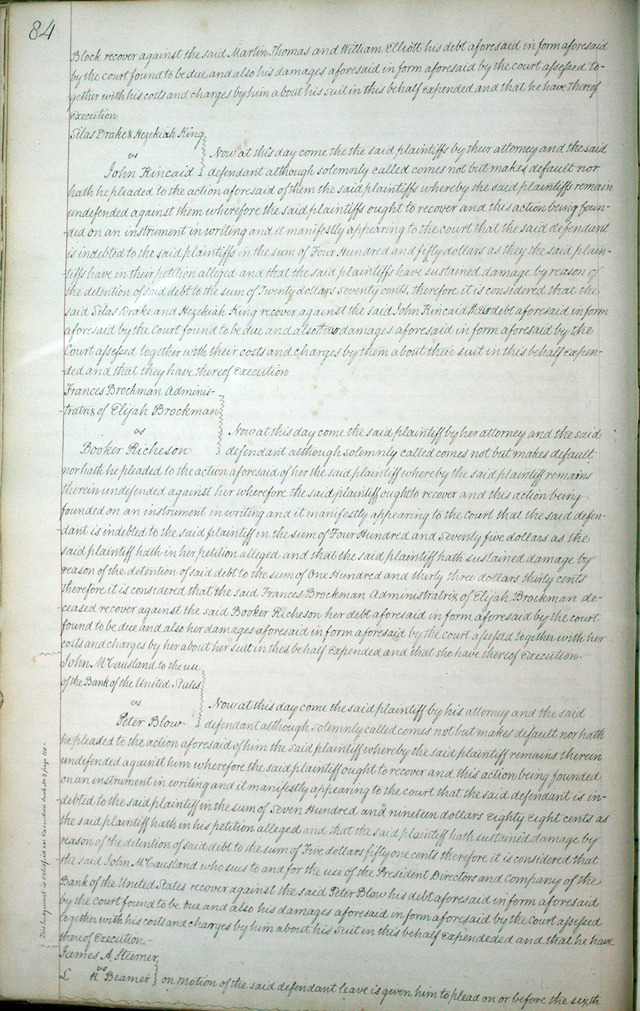 84
Block recover against the said Martin Thomas and William Elliott his debt aforesaid in form aforesaid
by the court found to be due and also his damages aforesaid in form aforesaid by the court afsefsed to-
gether with his costs and charges by him about his suit in this behalf expended and that he have thereof
execution
Silas Drake & Hezekiah King
vs
Now at this day come the the said plaintiffs by their attorney and the said
John Kincaid defendant although solemnly called comes not but makes default nor
hath he pleaded to the action aforesaid of them the said plaintiffs whereby the said plaintiffs remain
undefended against them wherefore the said plaintiffs ought to recover and this action being foun-
ded on an instrument in writing and it manifestly appearing to the court that the said defendant
is indebted to the said plaintiffs in the sum of Four Hundred and fifty dollars as they the said plain-
tiffs have in their petition alleged and that the said plaintiffs have sustained damage by reason of
the detention of said debt to the sum of Twenty dollars Seventy cents, therefore it is considered that the
said Silas Drake and Hezekiah King recover against the said John Kincaid their debt aforesaid in form
aforesaid by the Court found to be due and also their damages aforesaid in form aforesaid by the
Court afsefsed together with their costs and charges by them about their suit in this behalf expen-
ded and that they have thereof Execution
Frances Brockman Adminis-
tratrix of Elijah Brockman
vs
Now at this day come the said plaintiff by her attorney and the said
Booker Richeson defendant although solemnly called comes not but makes default
nor hath he pleaded to the action aforesaid of her the said plaintiff whereby the said plaintiff remains
therein undefended against her wherefore the said plaintiff ought to recover and this action being
founded on an instrument in writing and it manifestly appearing to the Court that the said defen-
dant is indebted to the said plaintiff in the sum of Four Hundred and Seventy five dollars as the
said plaintiff hath in her petition alleged and that the said plaintiff hath sustained damage by
reason of the detention of said debt to the sum of One Hundred and thirty three dollars thirty cents
therefore it is considered that the said Frances Brockman Administratrix of Elijah Brockman de-
ceased recover against the said Booker Richeson her debt aforesaid in form aforesaid by the court
found to be due and also her damages aforesaid in form aforesaid by the court afsefsed together with her
costs and charges by her about her suit in this behalf Expended and that she have thereof Execution.
John McCausland to the use
of the Bank of the United States
vs
Now at this day come the said plaintiff by his attorney and the said
Peter Blow defendant although solemnly called comes not but makes default nor hath
he pleaded to the action aforesaid of him the said plaintiff whereby the said plaintiff remains therein
undefended against him wherefore the said plaintiff ought to recover and this action being founded
on an instrument in writing and it manifestly appearing to the court that the said defendant is in-
debted to the said plaintiff in the sum of Seven Hundred and nineteen dollars Eighty Eight cents as
the said plaintiff hath in his petition alleged and that the said plaintiff hath sustained damage by
reason of the detention of said debt to the sum of Five dollars fifty one cents therefore it is considered that
the said John McCausland who sues to and for the use of the President Directors and Company of the
Bank of the United States recover against the said Peter Blow his debt aforesaid in form aforesaid
by the court found to be due and also his damages aforesaid in form aforesaid by the court afsefsed
together with his costs and charges by him about his suit in this behalf Expendeded and that he have
thereof Execution
This judgment is satisfied see Execution book No page
James A.
vs
Beamer on motion of the said defendant leave is given him to plead on or before the sixth